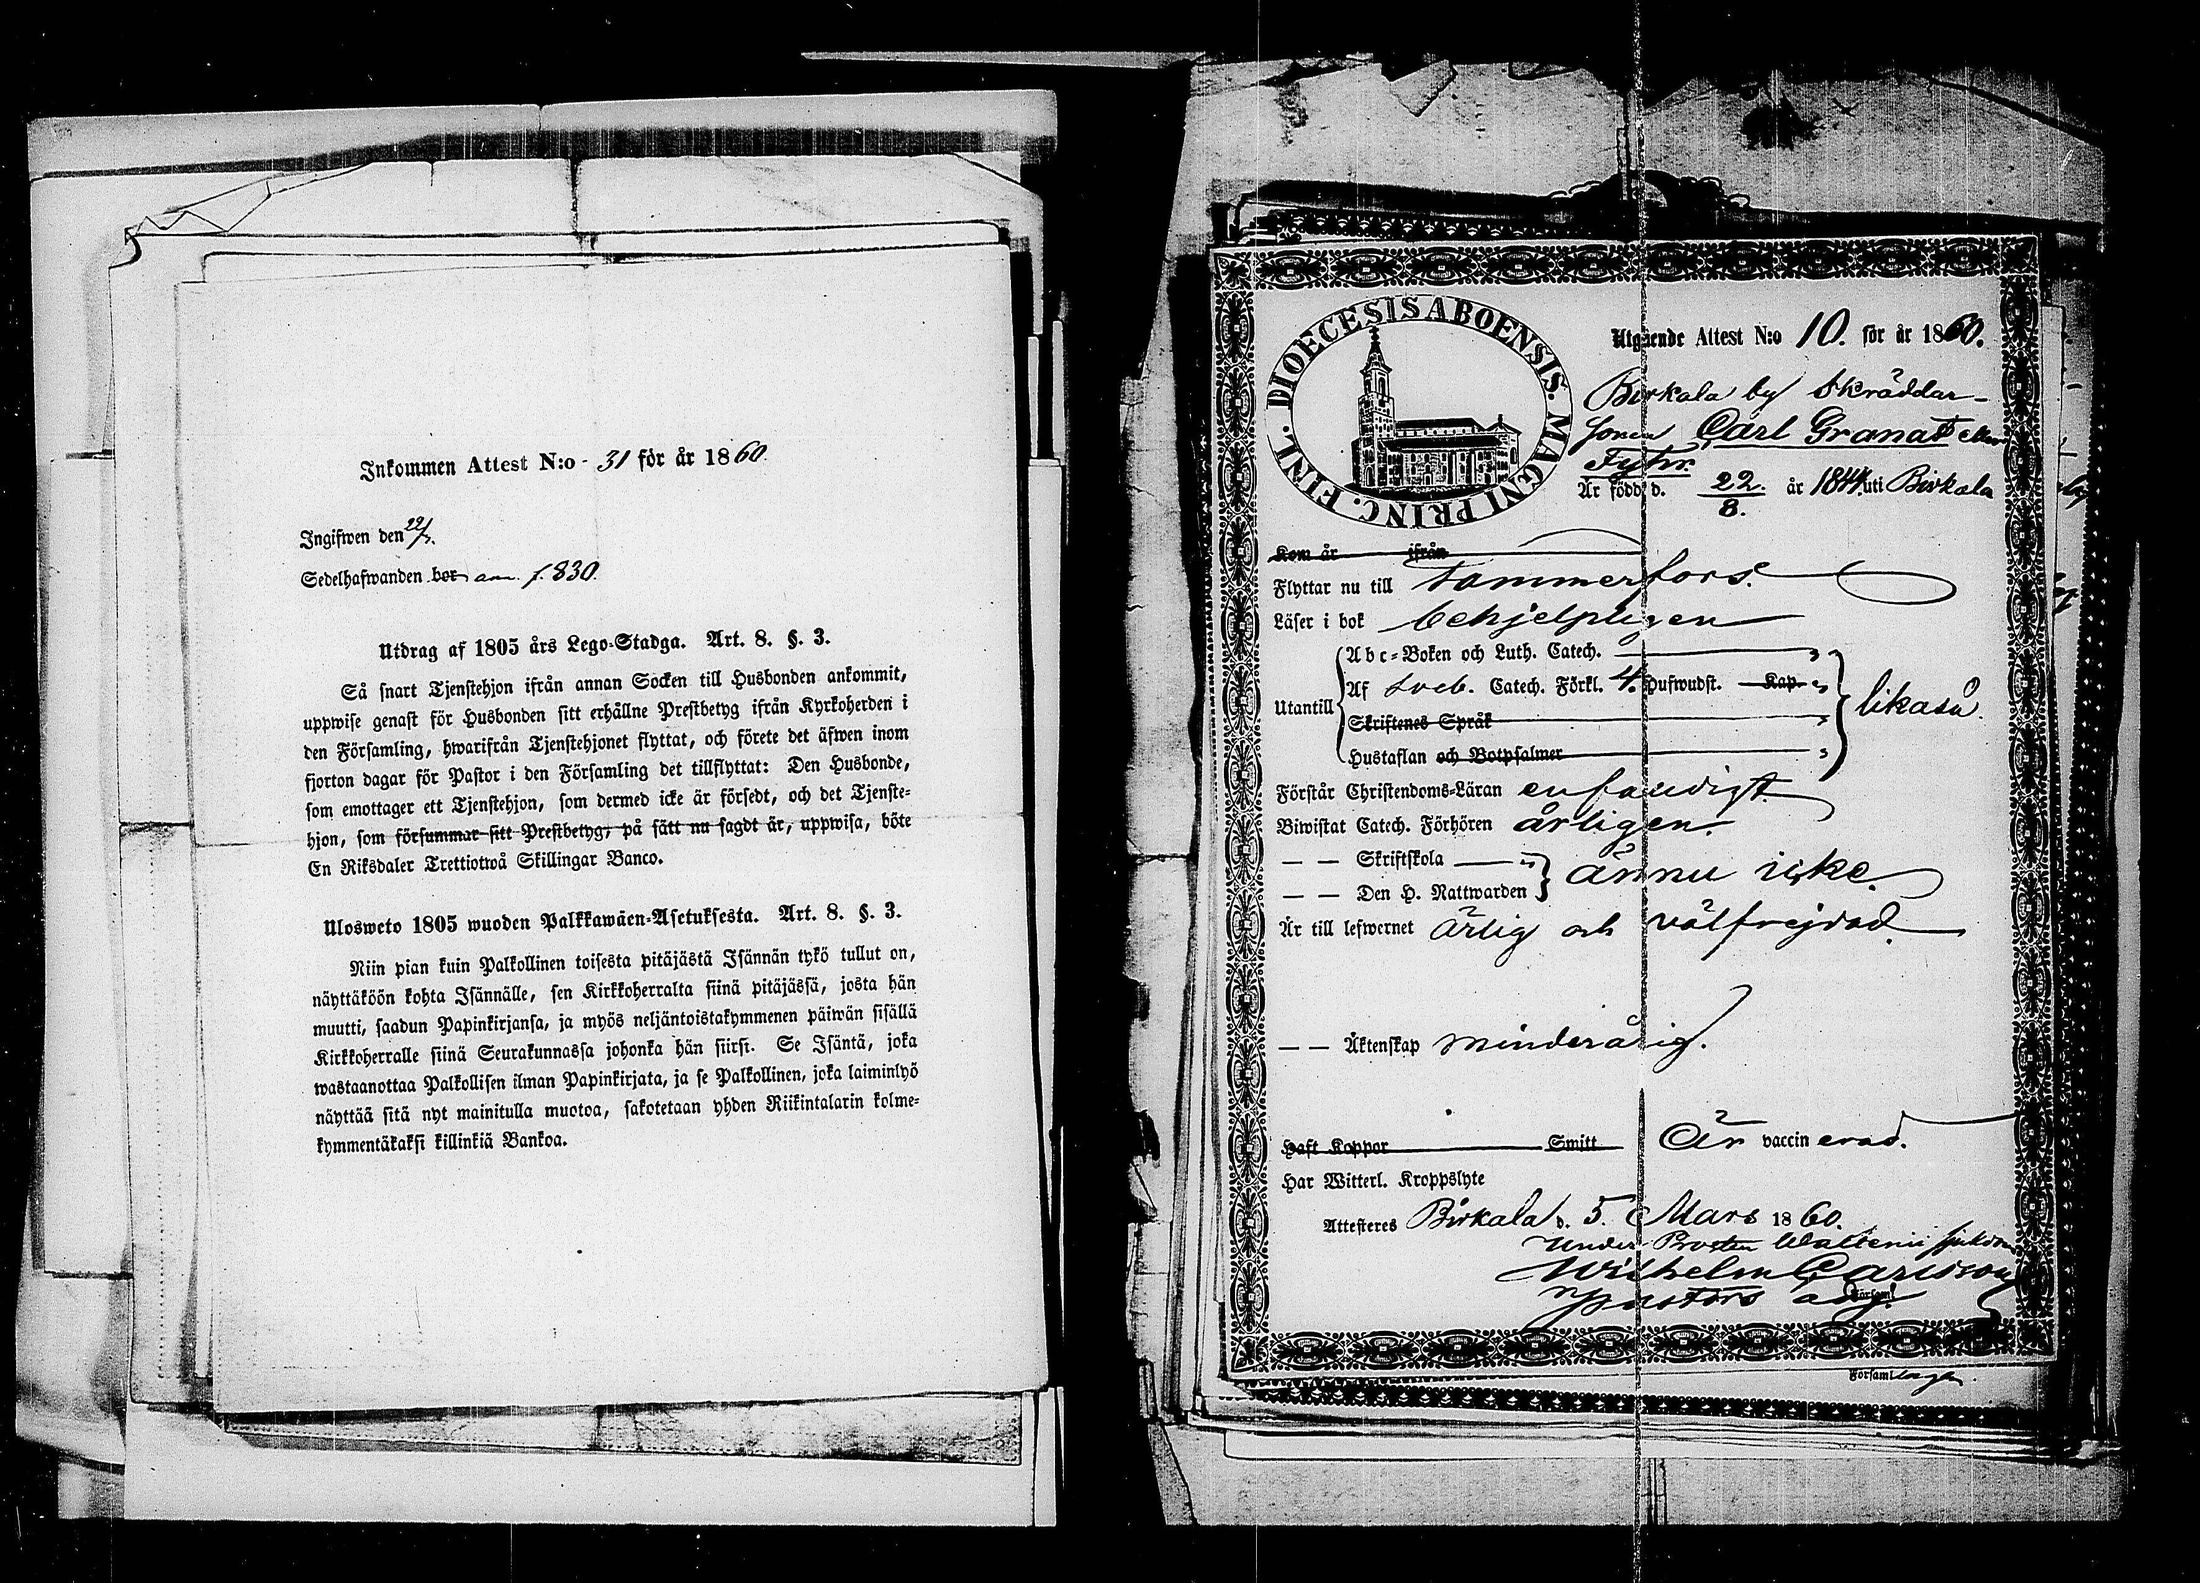 Inkommen Attest N:o - 31 för år 1860
Ingifwen den 22/3.
Sedelhafwanden bor ann. f. 830.
Utdrag af 1805 års Lego-Stadga. Art. 8. §. 3.
Så snart Tjenstehjon ifrån annan Socken till Husbonden ankommit,
uppwise genast för Husbonden sitt erhållne Prestbetyg ifrån Kyrkoherden i
den Församling, hwarifrån Tjenstehjonet flyttat, och förete det äfwen inom
fjorton dagar för Pastor i den Församling det tillflyttat: Den Husbonde,
som emottager ett Tjenstehjon, som dermed icke är försedt, och det Tjenste-
hjon, som försummar sitt Prestbetyg, på sätt nu sagdt är, uppwisa, böte
En Riksdaler Trettiotwå Skillingar Banco.
Ulosweto 1805 wuoden Palkkawäen-Asetuksesta. Art. 8. §. 3.
Niin pian kuin Palkollinen toisesta pitäjästä Isännän tykö tullut on,
näyttäköön kohta Isännälle, sen Kirkkoherralta siinä pitäjässä, josta hän
muutti, saadun Papinkirjansa, ja myös neljäntoistakymmenen päiwän sisällä
Kirkkoherralle siinä Seurakunnassa johonka hän siirsi. Se Isäntä, joka
wastaanottaa Palkollisen ilman Papinkirjata, ja se Palkollinen, joka laiminlyö
näyttää sitä nyt mainitulla muotoa, sakotetaan yhden Riikintalarin kolme-
kymmentäkaksi killinkiä Bankoa.
DIOECESIS ABOENSIS. MAGNI PRINC. FINL.
Utgående Attest N:o 10. för år 1860.
Birkala by Skräddar-
sonen Carl Granat eller
Fyhr.
Är född d. 22/8. år 1844. uti Birkala
Kom år ifrån
Flyttar nu till Tammerfors.
Läser i bok behjelpligen
Abc-Boken och Luth. Catech. "
Utantill Af Sveb. Catech. Förkl. 4. Hufwudst. Kap. " likaså.
Skriftenes Språk "
Hustaflan och Botpsalmer "
Förstår Christendoms-Läran enfaldigt.
Biwistat Catech. Förhören årligen.
— — Skriftskola — "
— — Den H. Nattwarden ännu icke.
Är till lefwernet ärlig och välfrejdad.
— — Äktenskap minderårig.
Haft Koppor Smitt Är vaccinerad.
Har Witterl. Kroppslyte
Attesteres Birkala d. 5. Mars 1860.
under Prosten Wallenii sjukdom
Wilhelm Carlsson
v pastors adj.
Församl
Församlingen.